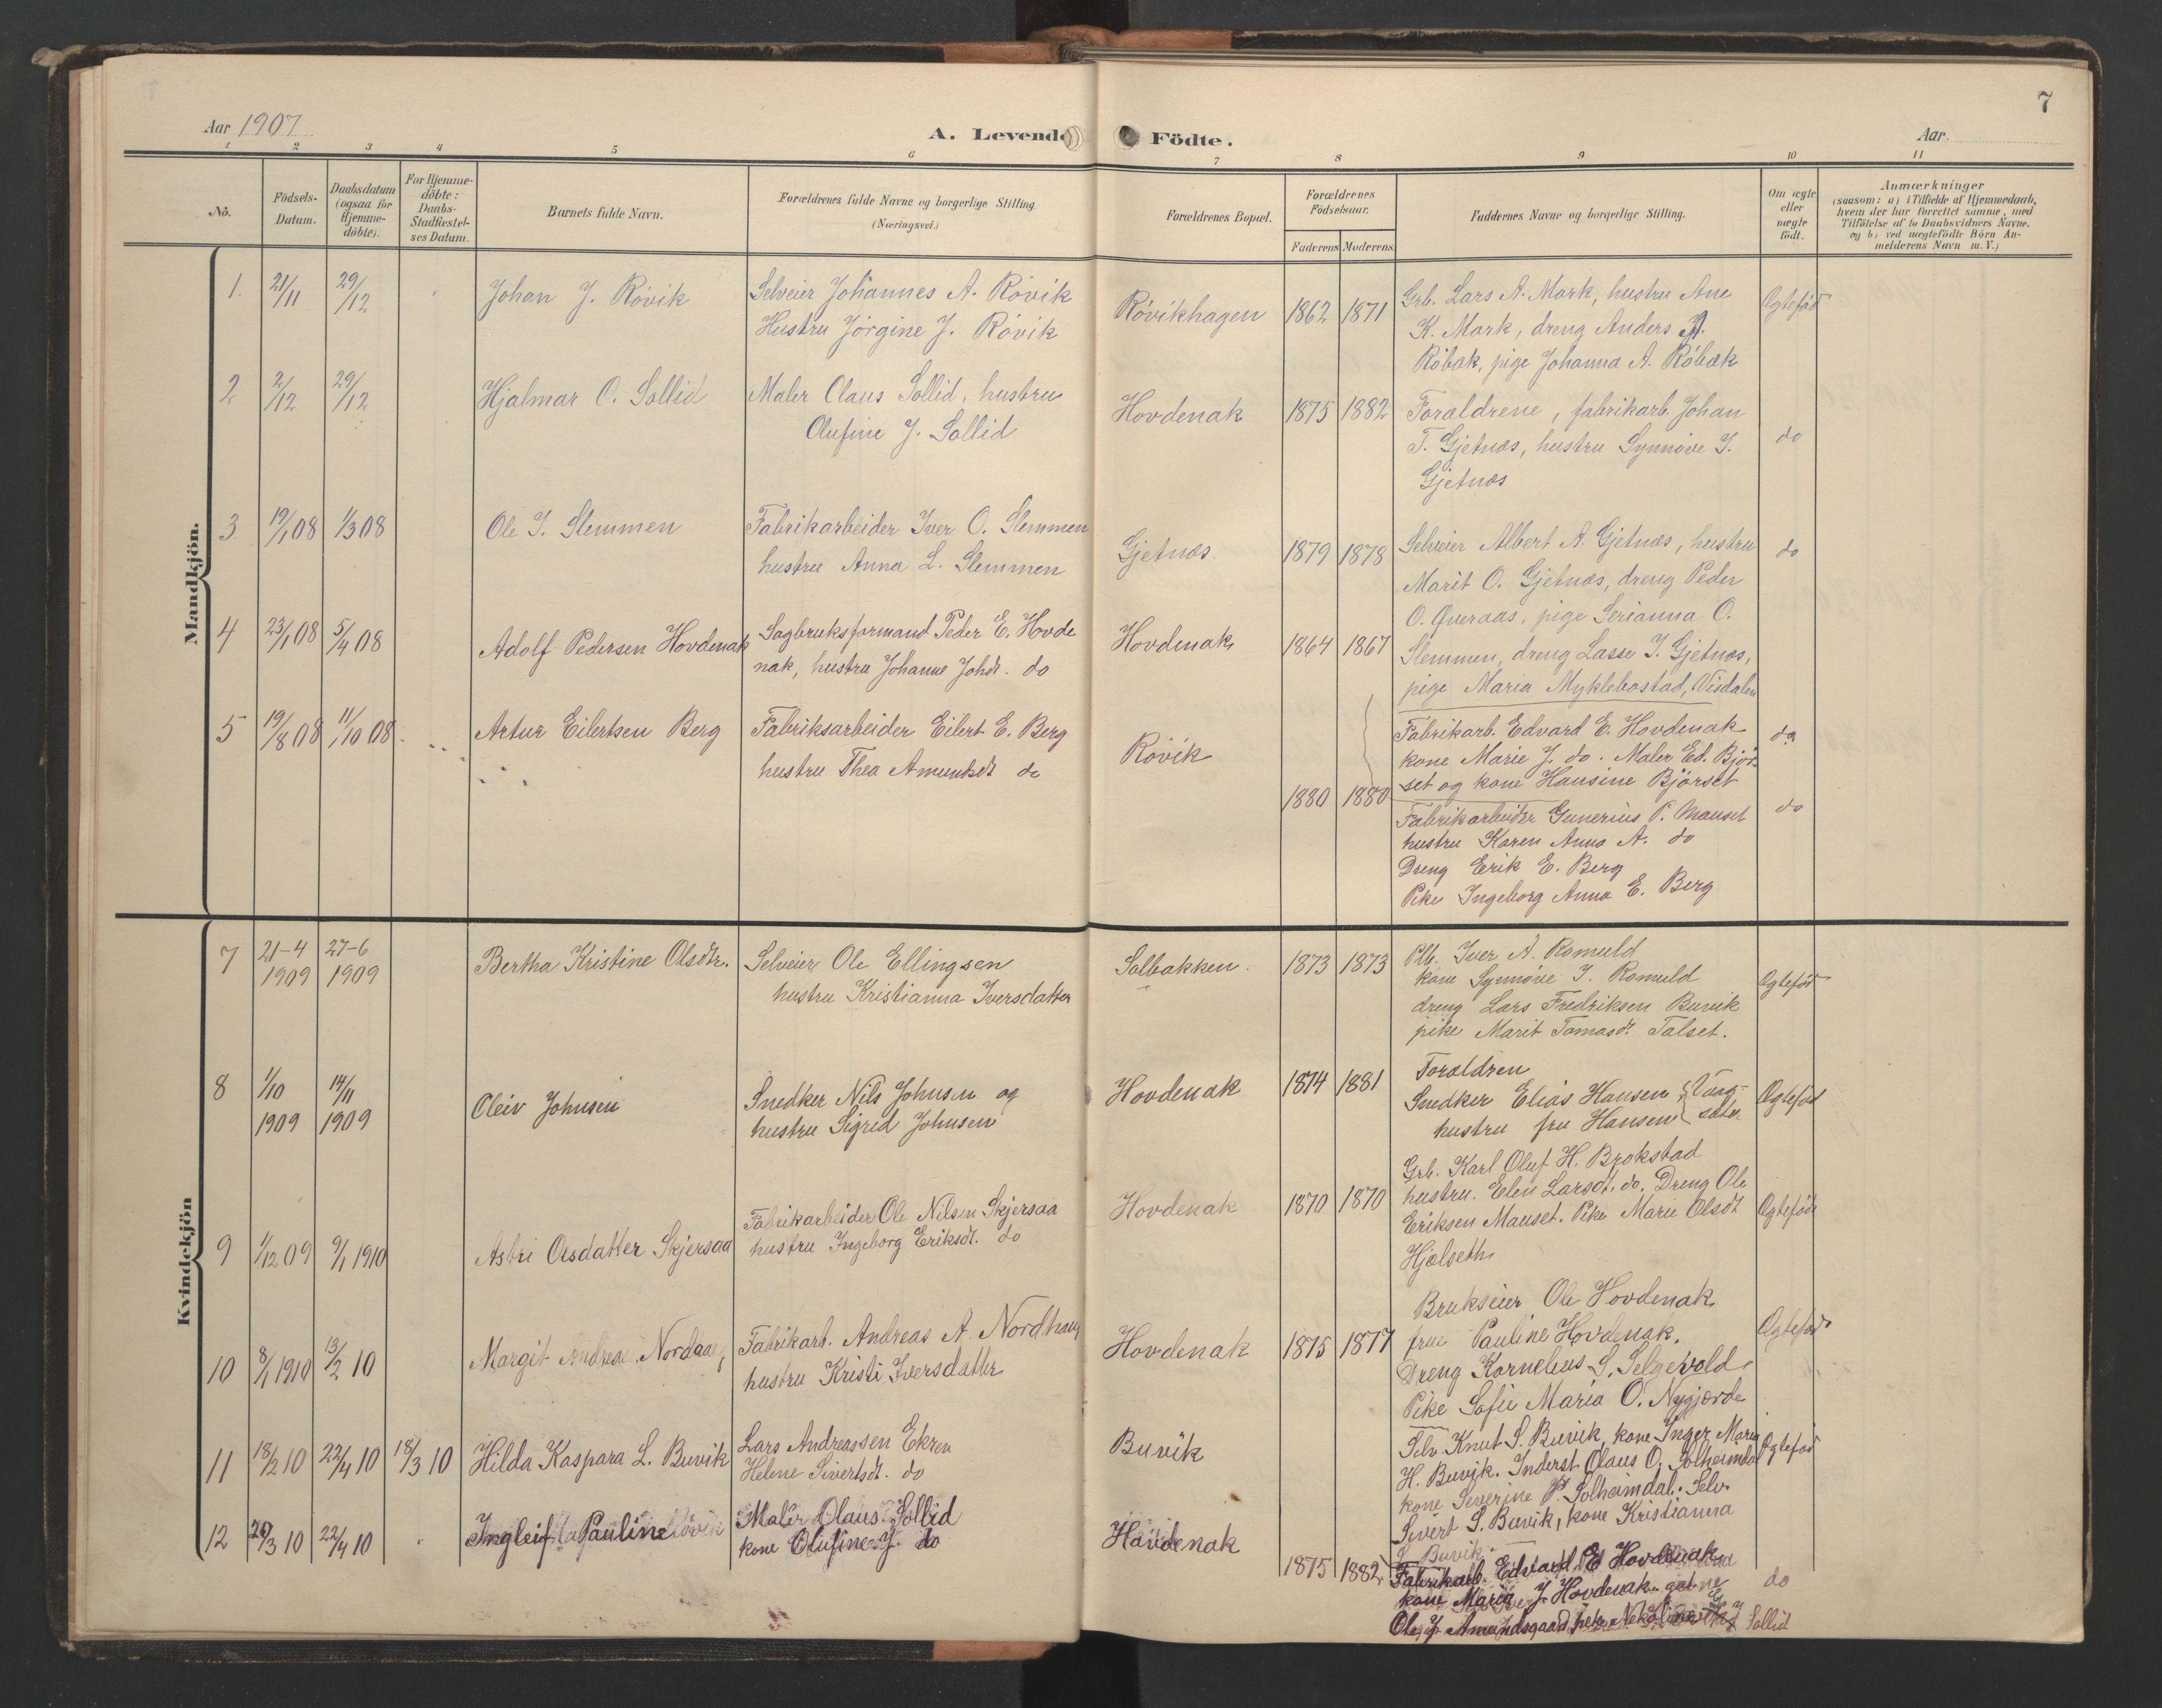 7
Aar 1907
A. Levende Födte.
Aar
1 2 3 4 5 6 7 8 9 10 11
No.
Födsels-
Datum.
Daabsdatum
(ogsaa for
Hjemme-
döbte).
For Hjemme-
döbte:
Daabs-
Stadfæstel-
ses Datum.
Barnets fulde Navn.
Forældrenes fulde Navne og borgerlige Stilling
(Næringsvei.)
Forældrenes Bopæl.
Forældrenes
Födselsaar.
Faderens Moderens
Faddernes Navne og borgerlige Stilling.
Om ægte
eller
uægte
födt.
Anmærkninger
(saasom: a) i Tilfælde af Hjemmedaab,
hvem der har forrettet samme, med
Tilföielse af to Daabsvidners Navne.
og b) ved uægtefödte Börn An-
melderens Navn m. V.)
Mandkjön.
1. 21/11 29/12
Johan J. Rövik
Selveier Johannes A. Rövik
Hustru Jörgine J. Rövik
Rövikhagen 1862 1871
Grb. Lars A. Mork, hustru Ane
K. Mork, dreng Anders A.
Röbæk, pige Johanna A. Röbæk
Ogtefød
2 2/12 29/12
Hjalmar O. Sollid
Maler Olaus Sollid, hustru
Olufine J. Sollid
Hovdenak 1875 1882
Foraldrene, fabrikarb. Johan
T. Gjetnæs, hustru Synnöve I.
Gjetnæs
do
3 19/1 08 1/3 08
Ole I. Slemmen
Fabrikarbeider Iver O. Slemmen
hustru Anna L. Slemmen
Gjetnæs 1879 1878
Selveier Albert A. Gjetnæs, hustru
Marit O. Gjetnæs, dreng Peder
O. Överaas, pige Serianna O.
Slemmen, dreng Lasse I. Gjetnæs,
pige Maria Myklebostad, Visdalen
do
4 23/1 08 5/4 08
Adolf Pedersen Hovdenak
Sagbruksformand Peder E. Hovde
nak, hustru Johanne Johdt. do
Hovdenak 1864 1867
Fabrikarb. Edvard E. Hovdenak
kone Marie J. do. Maler Ed. Björ-
set og kone Hansine Björset
do
5 19/8 08 11/10 08
Artur Eilertsen Berg
Fabriksarbeider Eilert E. Berg
hustru Thea Amundsdt do
Rövik
1880 1880
Fabrikarbeider Gunerius P. Mauset
hustru Karen Anna A. do
Dreng Erik E. Berg
Pike Ingeborg Anna E. Berg
do
Kvindekjön
7 21-4 1909 27-6 1909
Bertha Kristine Olsdtr.
Selveier Ole Ellingsen
hustru Kristianna Iversdatter
Solbakken. 1873 1873
Plb. Iver A. Romuld
kone Synnöve I. Romuld
dreng Lars Fredriksen Buvik
pike Marit Tomasdt. Talset.
Ogtefød
8 1/10 1909 14/11 1909
Oleiv Johnsen
Snedker Nils Johnsen og
hustru Sigrid Johnsen
Hovdenak 1874 1881
Foraldren
Snedker Elias Hansen
hustru fru Hansen
Ogtefød
9 1/12 09 9/1 1910
Astri Olsdatter Skjersaa
Fabrikarbeider Ole Nilsen Skjersaa
hustru Ingeborg Eriksdt. do
Hovdenak 1870 1870
Grb. Karl Oluf H. Brokstad
hustru. Elen Larsdt. do. Dreng Ole
Eriksen Mauset. Pike Marie Olsdt
Hjelseth
Ogtefødt
10 8/1 1910 13/2 10
Margit Andreas Nordhaug
Fabrikarb. Andreas A. Nordhaug
hustru Kristi Iversdatter
Hovdenak 1875 1877
Brukseier Ole Hovdenak
frue Pauline Hovdenak.
Dreng Kornelius S. Selgevold
Pike Sofie Maria O. Nygjerde
Ogtefød
11 18/2 10 22/4 10 18/3 10
Hilda Kaspara L. Buvik
Lars Andreassen Ekren
Helene Sivertsdt. do
Buvik
Selv. Knut S. Buvik, kone Inger Maria
H. Buvik. Inderst Olaus O. Solheimdal
kone Severine P. Solheimdal. Selv.
Sivert S. Buvik, kone Kristianna
Buvik
Ogtefød
12 20/3 10 22/4 10
Ingleif Pauline
Maler Olaus Sollid
kone Olufine J. do
Hovdenak
1875 1882
Fabrikarb. Edvard E Hovdenak
kone Maria J. Hovdenak
Ole J Amundsgaard, pike Nekoline J Sollid
do